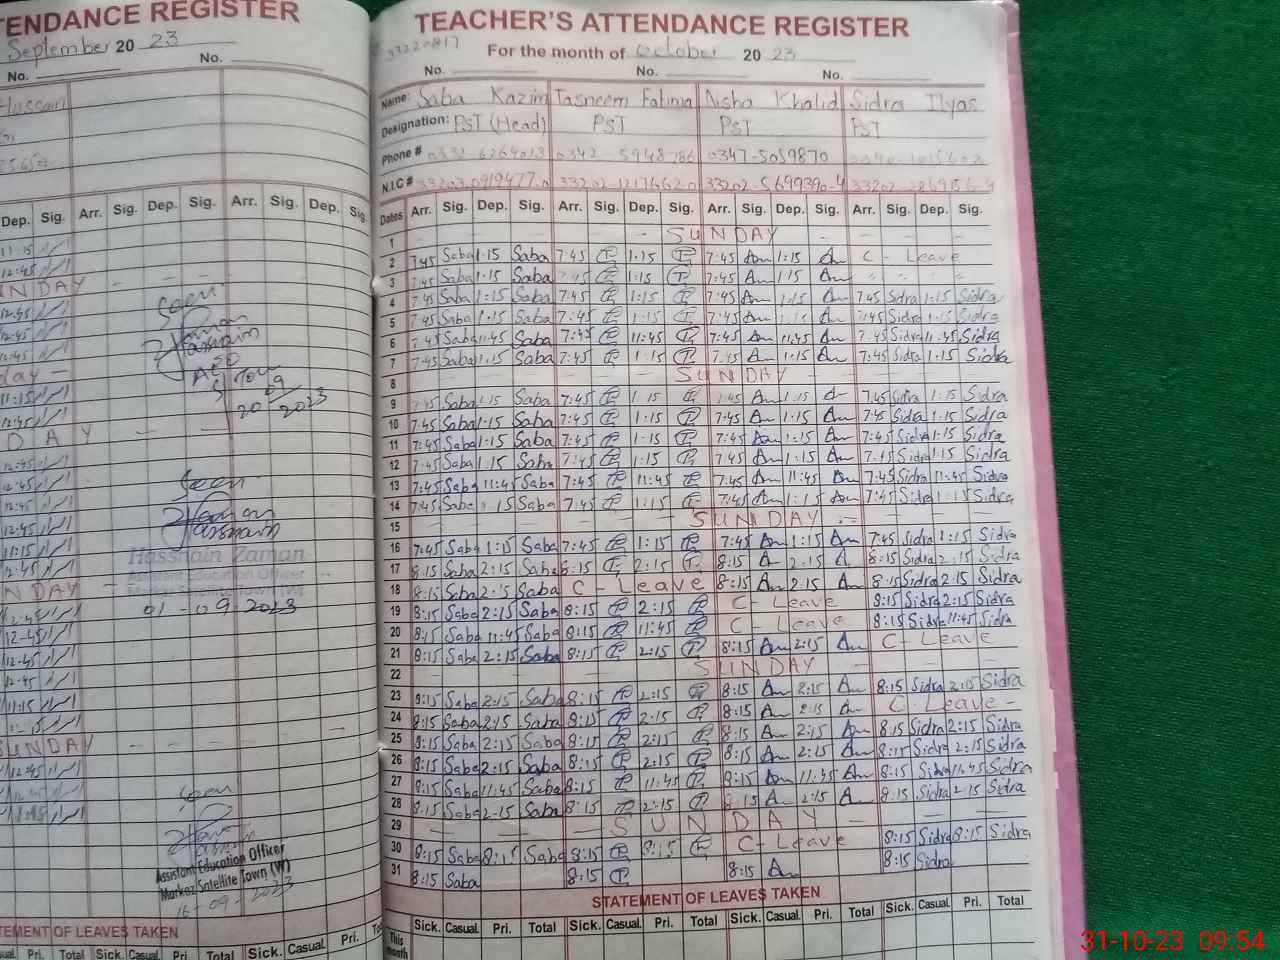 TENDANCE REGISTER
September 20 23
No. No.
Hussain
Dep. Sig. Arr. Sig. Dep. Sig. Arr. Sig. Dep. Sig.
11:15
12:45
NDAY
12:45
day
11:15
12:45
DAY
12:45
12:45
11:15
12:45
NDAY
12-45
12-45
12-45
11:15
SUNDAY
12:45
11:45
Seen
Zaman
Hassnain
AEO
S/Town
20 09 2023
Seen
Zaman
Hassnain
Hassnain Zaman
Assistant Education Officer
01-09-2023
Seen
Assistant Education Officer
Markaz Satellite Town (W)
16-09-2023
TEMENT OF LEAVES TAKEN
Pri. Total Sick. Casual Pri. Total Sick. Casual Pri.
TEACHER'S ATTENDANCE REGISTER
33220817
For the month of October 20 23
No. No. No.
Name: Saba Kazim Tasneem Fatima Aisha Khalid Sidra Ilyas
Designation: PST (Head) PST PST PST
Phone # 0332 6264013 0342 5948786 0347-5059870
N.I.C # 33203 0919477.0 33202-1217662.0 33202-5699390-4
Dates Arr. Sig. Dep. Sig. Arr. Sig. Dep. Sig. Arr. Sig. Dep. Sig. Arr. Sig. Dep. Sig.
1 SUNDAY
2 7:45 Saba 1:15 Saba 7:45 T 1:15 T 7:45 An 1:15 An C - Leave
3 7:45 Saba 1:15 Saba 7:45 T 1:15 T 7:45 An 1:15 An
4 7:45 Saba 1:15 Saba 7:45 T 1:15 T 7:45 An 1:15 An 7:45 Sidra 1:15 Sidra
5 7:45 Saba 1:15 Saba 7:45 T 1:15 T 7:45 An 1:15 An 7:45 Sidra 1:15 Sidra
6 7:45 Saba 11:45 Saba 7:45 T 11:45 T 7:45 An 11:45 An 7:45 Sidra 11:45 Sidra
7 7:45 Saba 1:15 Saba 7:45 T 1:15 T 7:45 An 1:15 An 7:45 Sidra 1:15 Sidra
8 SUNDAY
9 7:45 Saba 1:15 Saba 7:45 T 1:15 T 7:45 An 1:15 An 7:45 Sidra 1:15 Sidra
10 7:45 Saba 1:15 Saba 7:45 T 1:15 T 7:45 An 1:15 An 7:45 Sidra 1:15 Sidra
11 7:45 Saba 1:15 Saba 7:45 T 1:15 T 7:45 An 1:15 An 7:45 Sidra 1:15 Sidra
12 7:45 Saba 1:15 Saba 7:45 T 1:15 T 7:45 An 1:15 An 7:45 Sidra 1:15 Sidra
13 7:45 Saba 11:45 Saba 7:45 T 11:45 T 7:45 An 11:45 An 7:45 Sidra 11:45 Sidra
14 7:45 Saba 1:15 Saba 7:45 T 1:15 T 7:45 An 1:15 An 7:45 Sidra 1:15 Sidra
15 SUNDAY
16 7:45 Saba 1:15 Saba 7:45 T 1:15 T 7:45 An 1:15 An 7:45 Sidra 1:15 Sidra
17 8:15 Saba 2:15 Saba 8:15 T 2:15 T 8:15 A 2:15 A 8:15 Sidra 2:15 Sidra
18 8:15 Saba 2:15 Saba C - Leave 8:15 An 2:15 A 8:15 Sidra 2:15 Sidra
19 8:15 Saba 2:15 Saba 8:15 T 2:15 T C - Leave 8:15 Sidra 2:15 Sidra
20 8:15 Saba 11:45 Saba 8:15 T 11:45 T C - Leave 8:15 Sidra 11:45 Sidra
21 8:15 Saba 2:15 Saba 8:15 T 2:15 T 8:15 An 2:15 An C - Leave
22 SUNDAY
23 8:15 Saba 2:15 Saba 8:15 T 2:15 T 8:15 An 2:15 A 8:15 Sidra 2:15 Sidra
24 8:15 Saba 2:15 Saba 8:15 T 2:15 T 8:15 An 2:15 A C - Leave -
25 8:15 Saba 2:15 Saba 8:15 T 2:15 T 8:15 An 2:15 An 8:15 Sidra 2:15 Sidra
26 8:15 Saba 2:15 Saba 8:15 T 2:15 T 8:15 An 2:15 An 8:15 Sidra 2:15 Sidra
27 8:15 Saba 11:45 Saba 8:15 T 11:45 T 8:15 An 11:45 An 8:15 Sidra 11:45 Sidra
28 8:15 Saba 2:15 Saba 8:15 T 2:15 T 8:15 An 2:15 A 8:15 Sidra 2:15 Sidra
29 SUNDAY
30 8:15 Saba 8:15 Saba 8:15 T 8:15 T C - Leave 8:15 Sidra 8:15 Sidra
31 8:15 Saba 8:15 T 8:15 A 8:15 Sidra
STATEMENT OF LEAVES TAKEN
Sick. Casual Pri. Total Sick. Casual Pri. Total Sick. Casual Pri. Total Sick. Casual Pri. Total
This month
31-10-23 09:54